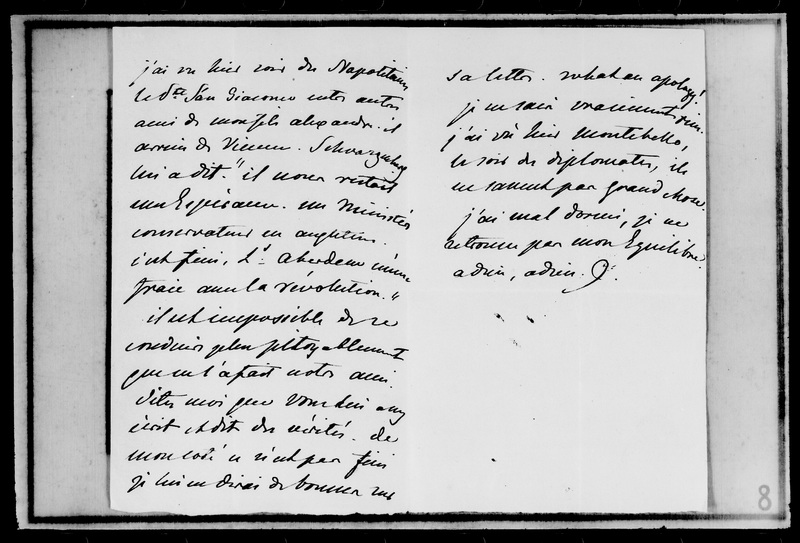 j'ai vu hier soir des Napolitains
le d. San Giacomo entre autres
ami de mon fils alexandre. il
arrive de Vienne. Schwarzenberg
lui a dit. "il nous restait
une Espérance. un Ministère
conservateur en angleterre.
c'est fini, Ld Aberdeen
fraie avec la révolution."
il est impossible de se
conduire plus pitoyablement
que ne l'a fait notre ami.
dites moi que vous lui avez
écrit et dit des vérités. de
mon coté ce n'est pas fini
je lui en dirai de bonnes sur
sa lettre. what an apology!
je ne sais vraiment rien.
j'ai vu hier Montebello,
le soir des diplomates, ils
ne savent pas grand chose.
j'ai mal dormi, je ne
retrouve pas mon Equilibre.
adieu, adieu.
8